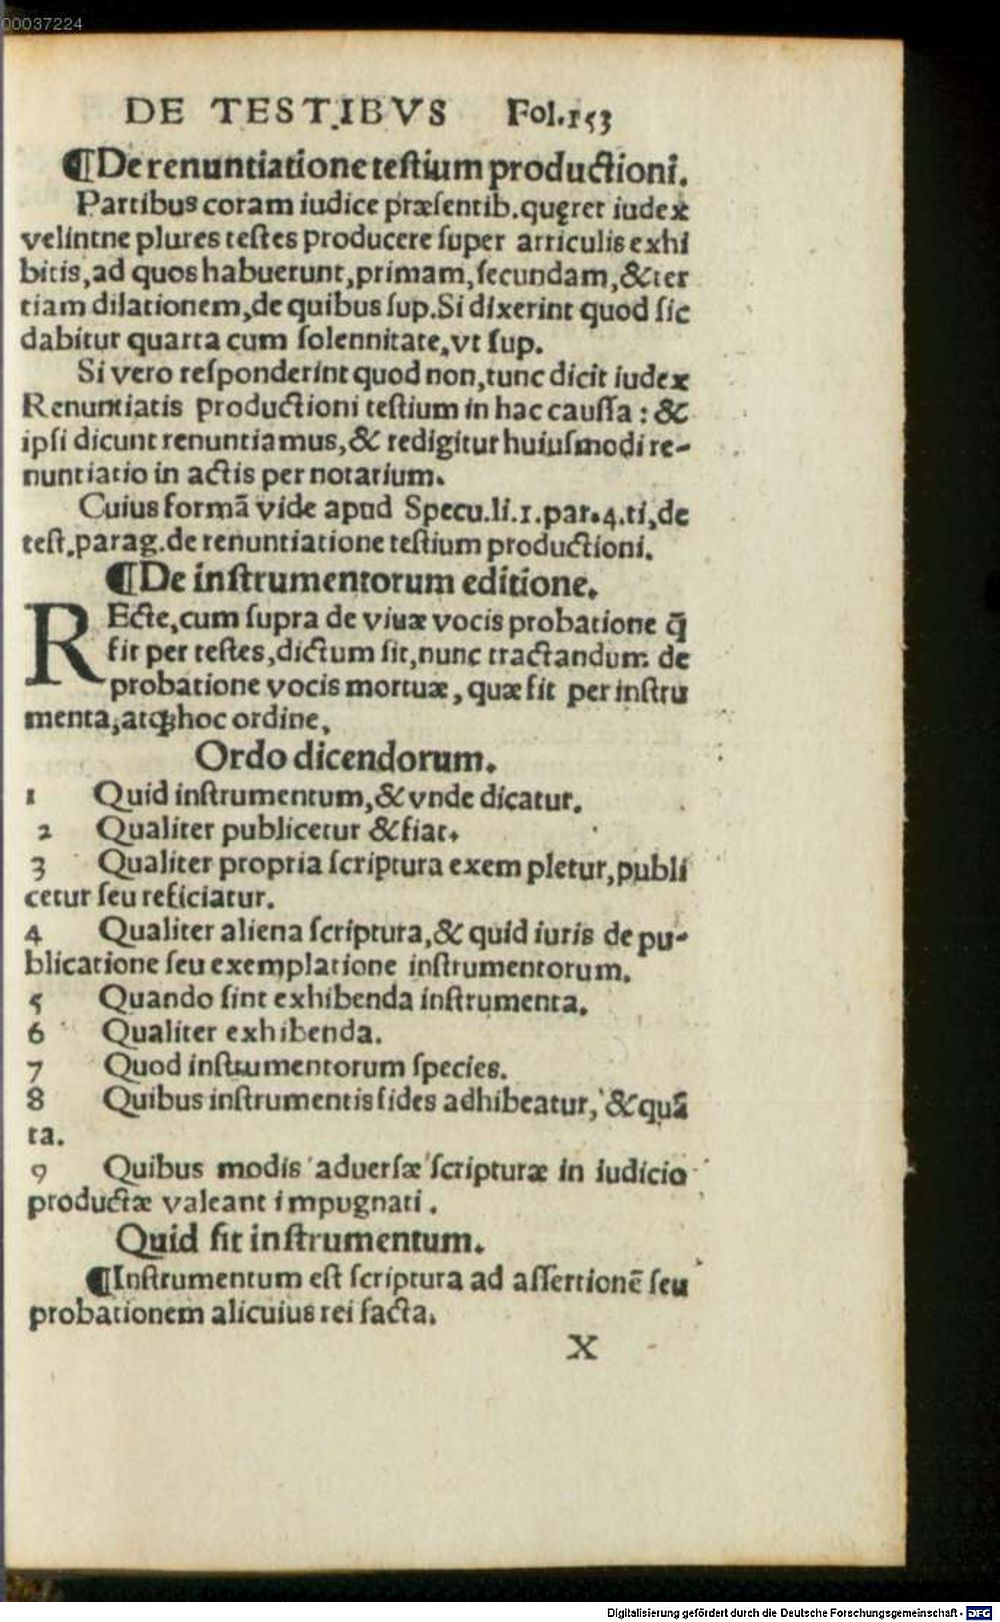 00037224
DE TESTIBVS Fol.153
¶De renuntiatione teſtium productioni.
Partibus coram iudice præſentib.quęret iudex
velintne plures teſtes producere ſuper articulis exhi
bitis,ad quos habuerunt,primam,ſecundam,&ter
tiam dilationem,de quibus ſup.Si dixerint quod ſic
dabitur quarta cum ſolennitate,vt ſup.
Si vero reſponderint quod non,tunc dicit iudex
Renuntiatis productioni teſtium in hac cauſſa : &
ipſi dicunt renuntiamus,& redigitur huiuſmodi re-
nuntiatio in actis per notarium.
Cuius formã vide apud Specu.li.1.par.4.ti,de
teſt.parag.de renuntiatione teſtium productioni.
¶De inſtrumentorum editione.
REcte,cum ſupra de viuæ vocis probatione q̃
fit per teſtes,dictum ſit,nunc tractandum de
probatione vocis mortuæ, quæ fit per inſtru
menta,atqꝫ hoc ordine,
Ordo dicendorum.
1 Quid inſtrumentum,& vnde dicatur.
2 Qualiter publicetur & fiat.
3 Qualiter propria ſcriptura exem pletur,publi
cetur ſeu reficiatur.
4 Qualiter aliena ſcriptura,& quid iuris de pu-
blicatione ſeu exemplatione inſtrumentorum.
5 Quando ſint exhibenda inſtrumenta.
6 Qualiter exhibenda.
7 Quod inſtrumentorum ſpecies.
8 Quibus inſtrumentis fides adhibeatur, & quã
ta.
9 Quibus modis aduerſæ ſcripturæ in iudicio
productæ valeant impugnari.
Quid ſit inſtrumentum.
¶Inſtrumentum eſt ſcriptura ad aſſertionẽ ſeu
probationem alicuius rei facta.
X
Digitalisierung gefördert durch die Deutsche Forschungsgemeinschaft - DFG